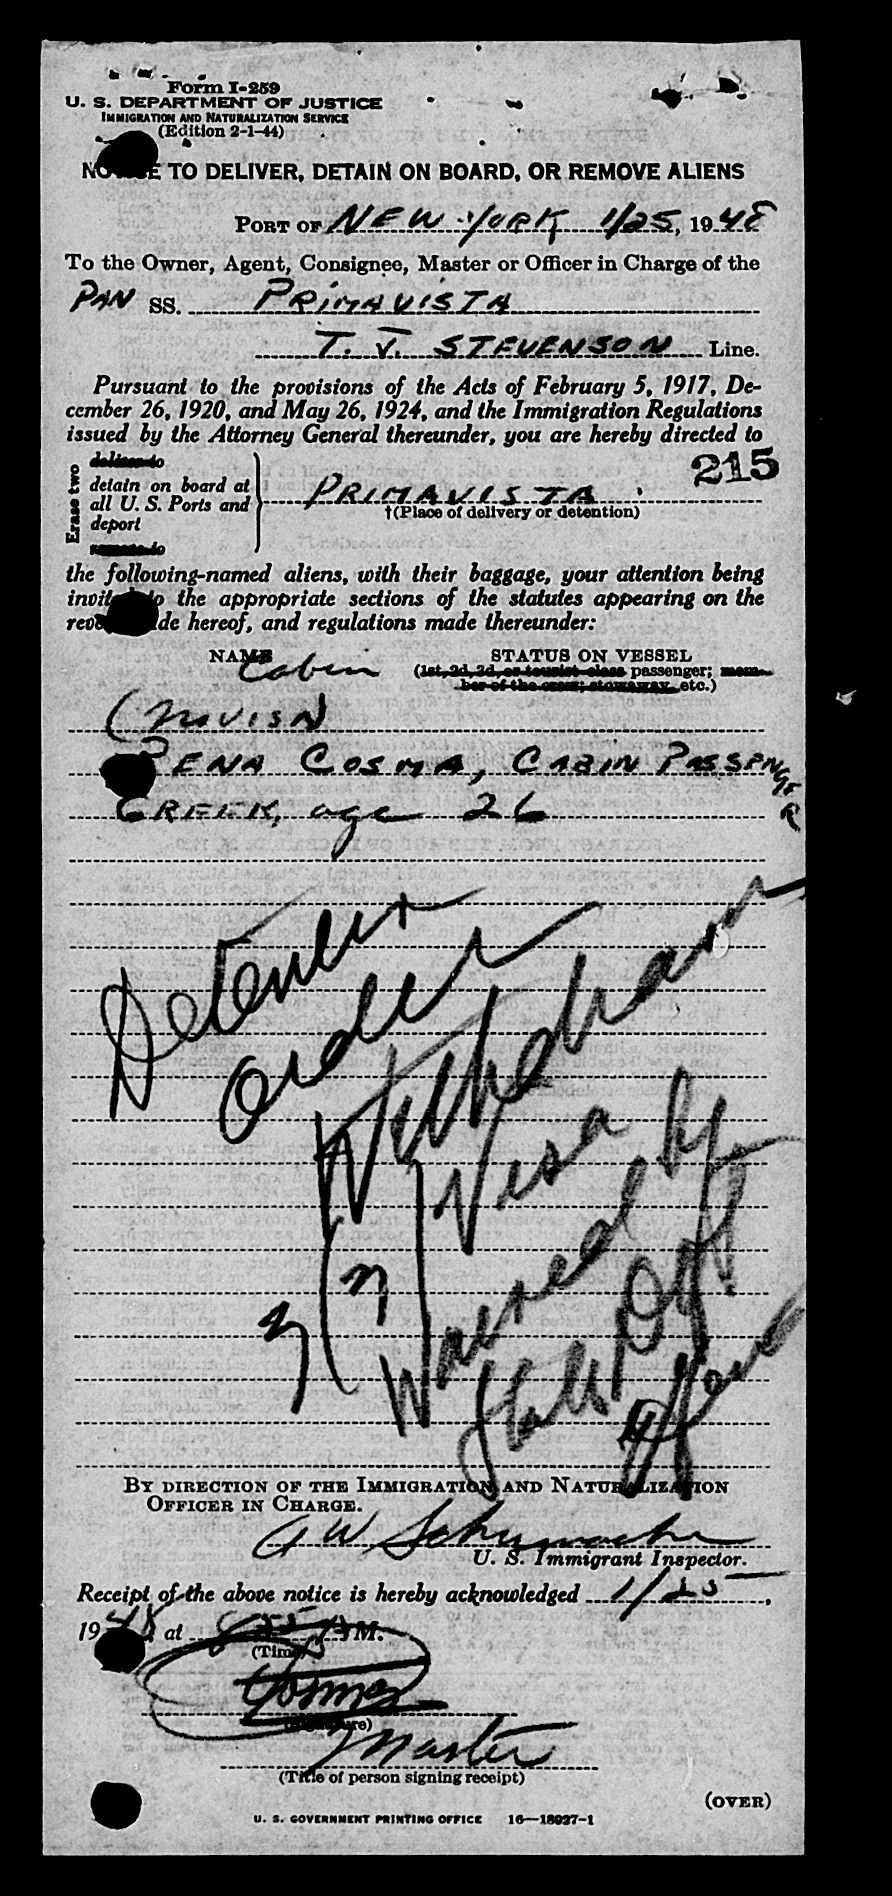 Form I-259
U. S. DEPARTMENT OF JUSTICE
IMMIGRATION AND NATURALIZATION SERVICE
(Edition 2-1-44)
NOTICE TO DELIVER, DETAIN ON BOARD, OR REMOVE ALIENS
PORT OF NEW YORK 1/25, 1948
To the Owner, Agent, Consignee, Master or Officer in Charge of the
PAN SS. PRIMAVISTA
T. J. STEVENSON Line.
Pursuant to the provisions of the Acts of February 5, 1917, De-
cember 26, 1920, and May 26, 1924, and the Immigration Regulations
issued by the Attorney General thereunder, you are hereby directed to
215
Erase two
deliver to
detain on board at
all U. S. Ports and
deport
remove to
PRIMAVISTA
†(Place of delivery or detention)
the following-named aliens, with their baggage, your attention being
invited to the appropriate sections of the statutes appearing on the
reverse side hereof, and regulations made thereunder:
NAME STATUS ON VESSEL
Cabin (1st, 2d, 3d, or tourist class passenger; mem-
ber of the crew; stowaway, etc.)
(NO VISA)
PENA COSMA, CABIN PASSENGER
GREEK, age 26
Detention
order
Withdrawn
Visa
Waived by
State Dept
BY DIRECTION OF THE IMMIGRATION AND NATURALIZATION
OFFICER IN CHARGE.
A W Schumacher
U. S. Immigrant Inspector.
Receipt of the above notice is hereby acknowledged 1/25,
1948, at 855 A M.
(Time)
(Signature)
Master
(Title of person signing receipt)
(OVER)
U. S. GOVERNMENT PRINTING OFFICE 16—18027-1